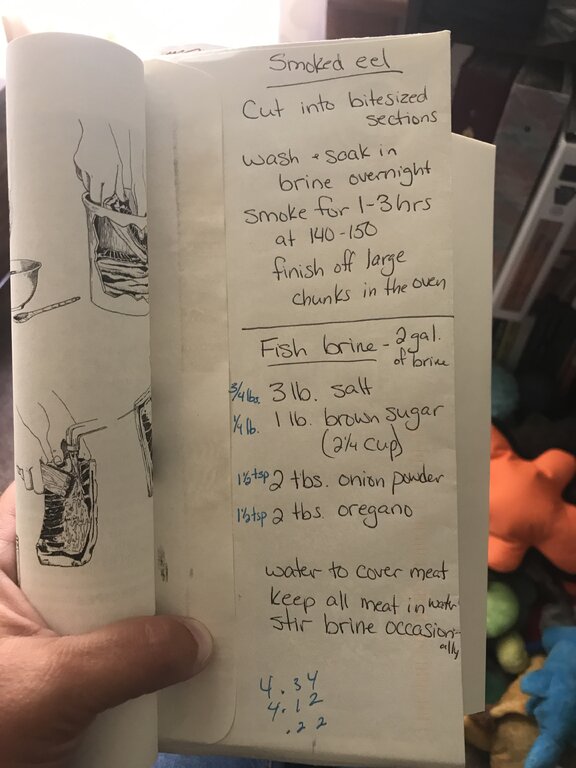 Smoked eel
Cut into bitesized
sections
wash + soak in
brine overnight
smoke for 1-3 hrs
at 140-150
finish off large
chunks in the oven
Fish brine - 2 gal.
of brine
3/4 lbs 3 lb. salt
1/4 lb. 1 lb. brown sugar
(2 1/4 cup)
1 1/2 tsp 2 tbs. onion powder
1 1/2 tsp 2 tbs. oregano
water to cover meat
keep all meat in water
stir brine occasion-
ally
4.34
4.12
.22